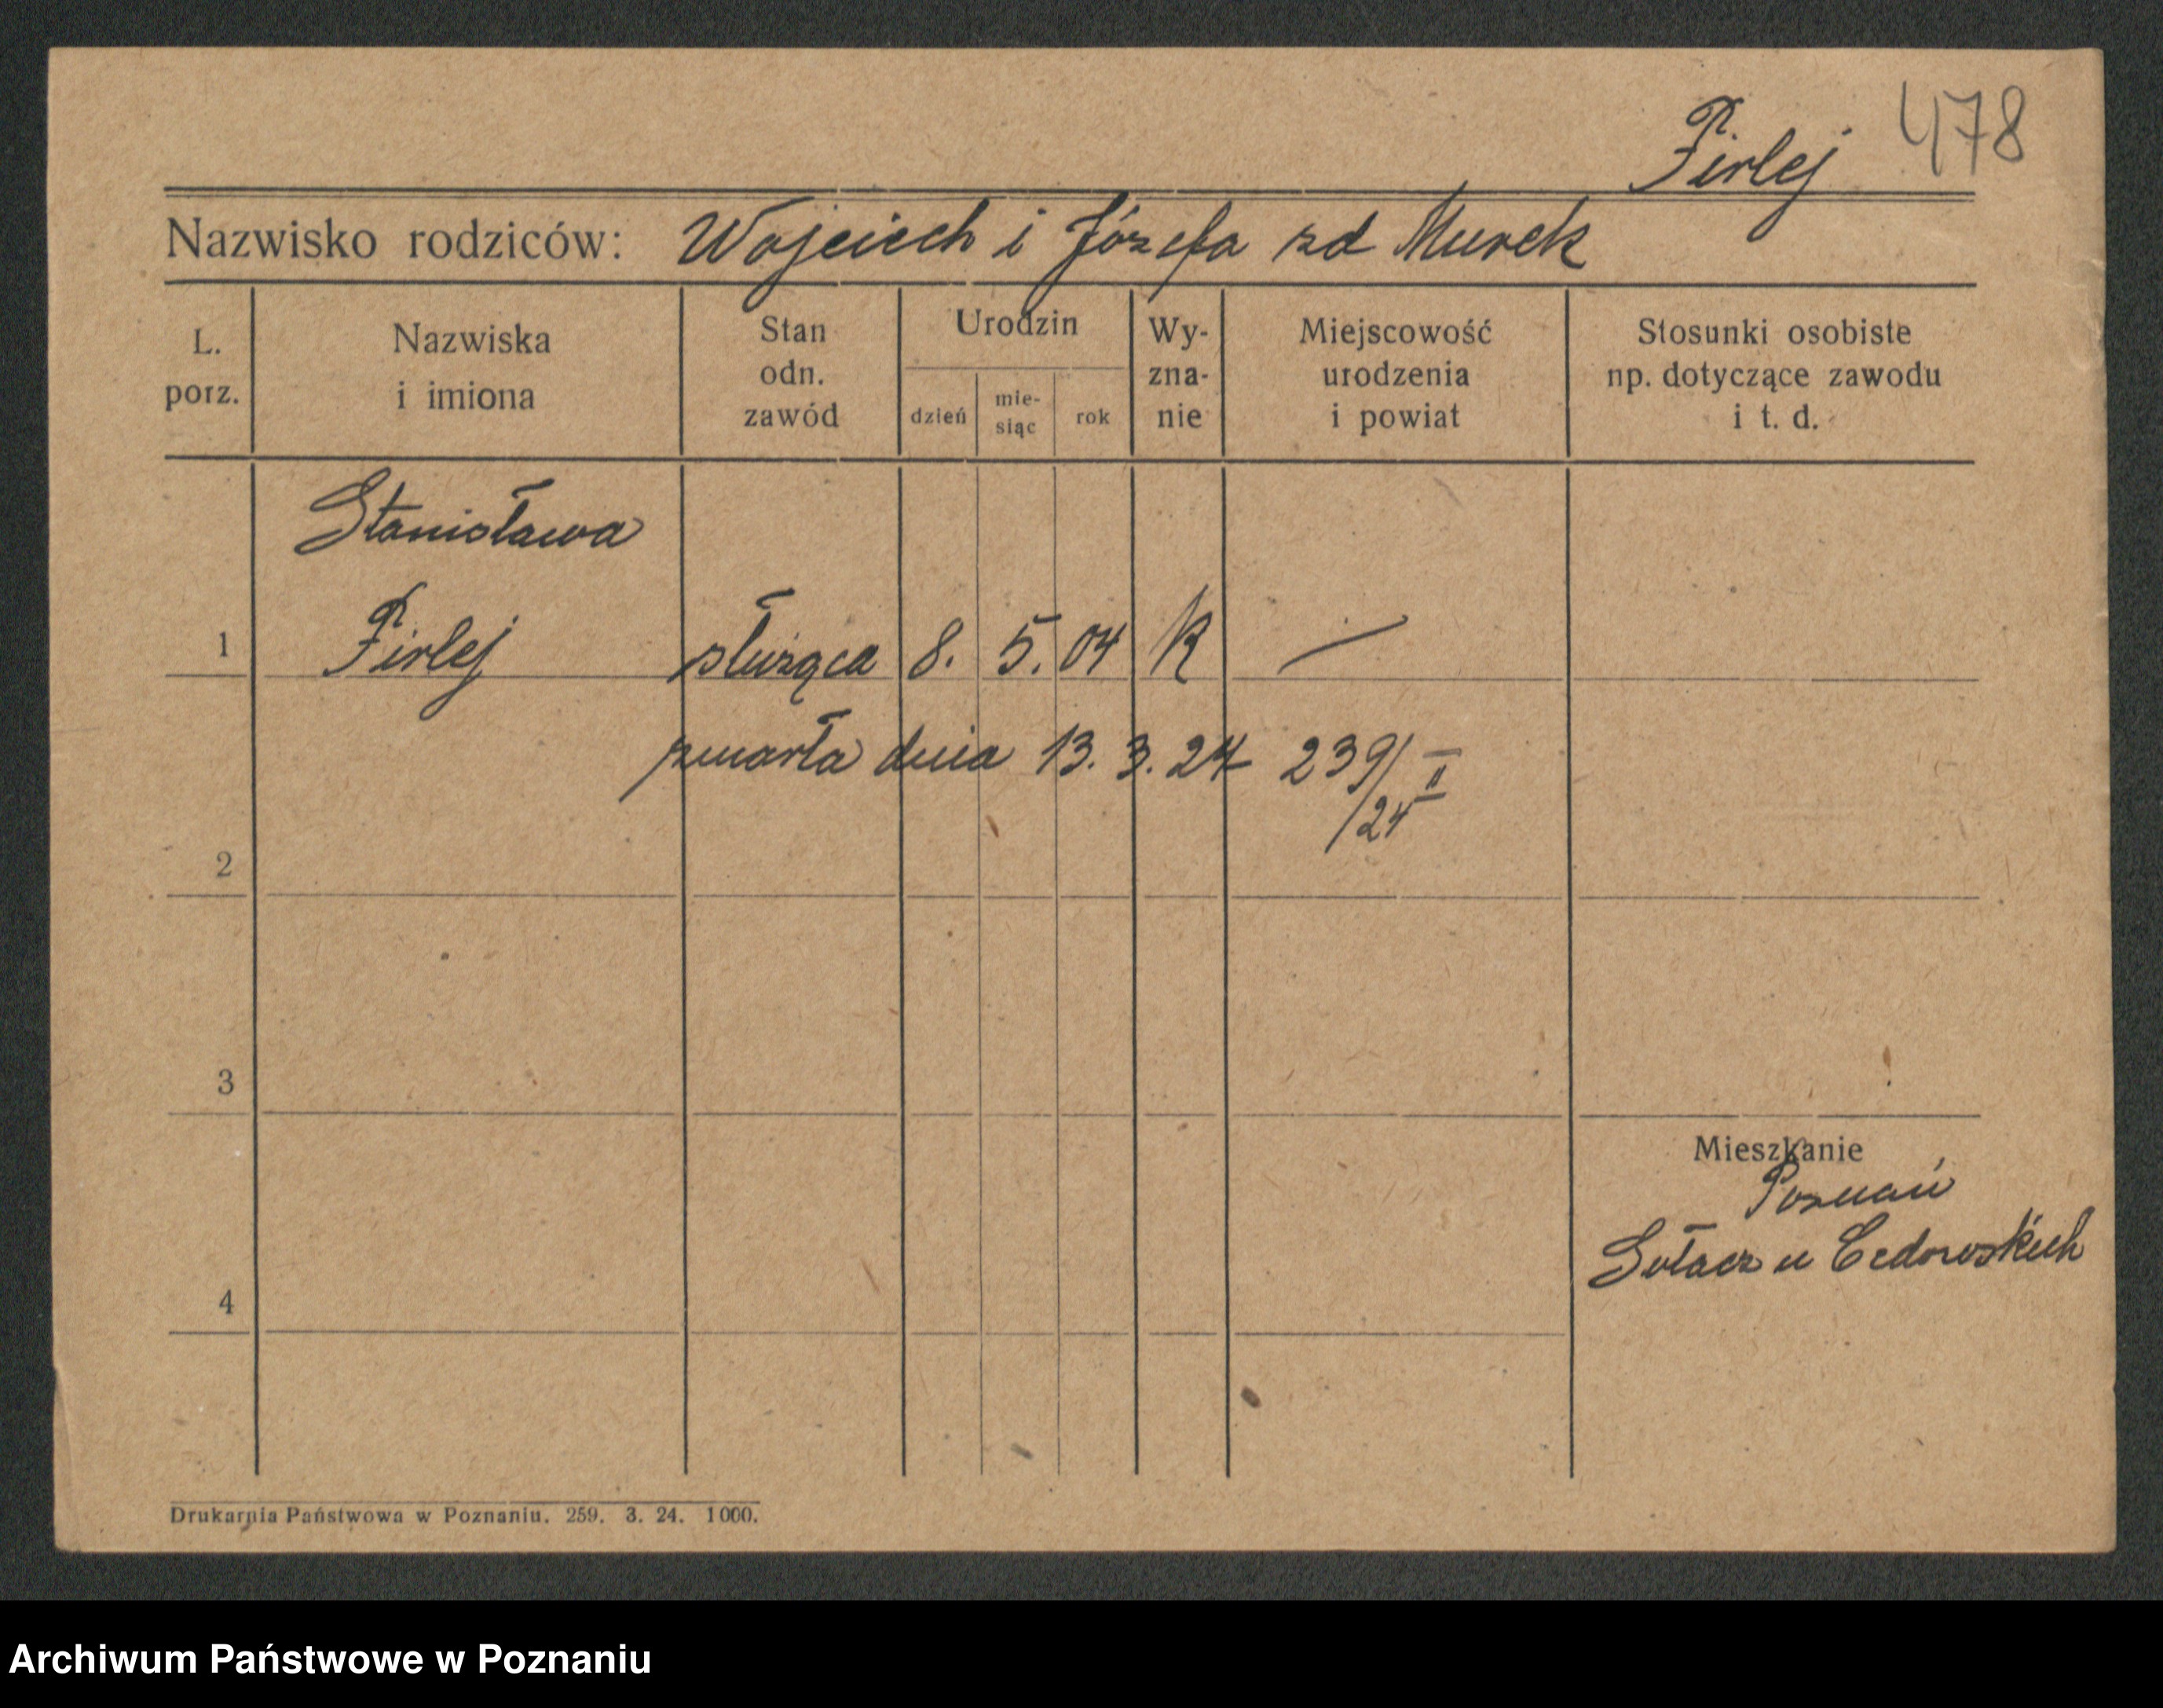 Pirlej 478
Nazwisko rodziców: Wojciech i Józefa zd Murek
L. porz.
Nazwiska i imiona
Stan odn. zawód
Urodzin
dzień
mie-siąc
rok
Wy-zna-nie
Miejscowość urodzenia i powiat
Stosunki osobiste np. dotyczące zawodu i t. d.
Stanisława
1 Pirlej służąca 8. 5. 04 K —
zmarła dnia 13. 3. 24 239/II
/24
2
3
Mieszkanie
Poznań
Sołacz u Cedowskich
4
Drukarnia Państwowa w Poznaniu. 259. 3. 24. 1000.
Archiwum Państwowe w Poznaniu